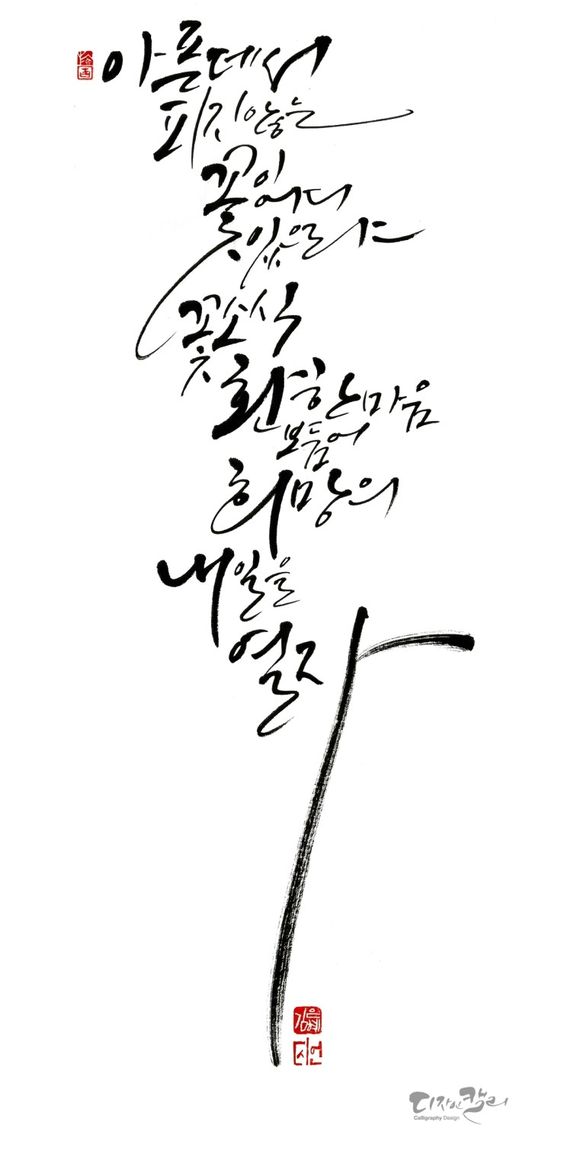 아픈데서
피지않는
꽃이어디
있으랴
꽃소식
환한마음
보듬어
희망의
내일을
열자
디자인캘리
Calligraphy Design